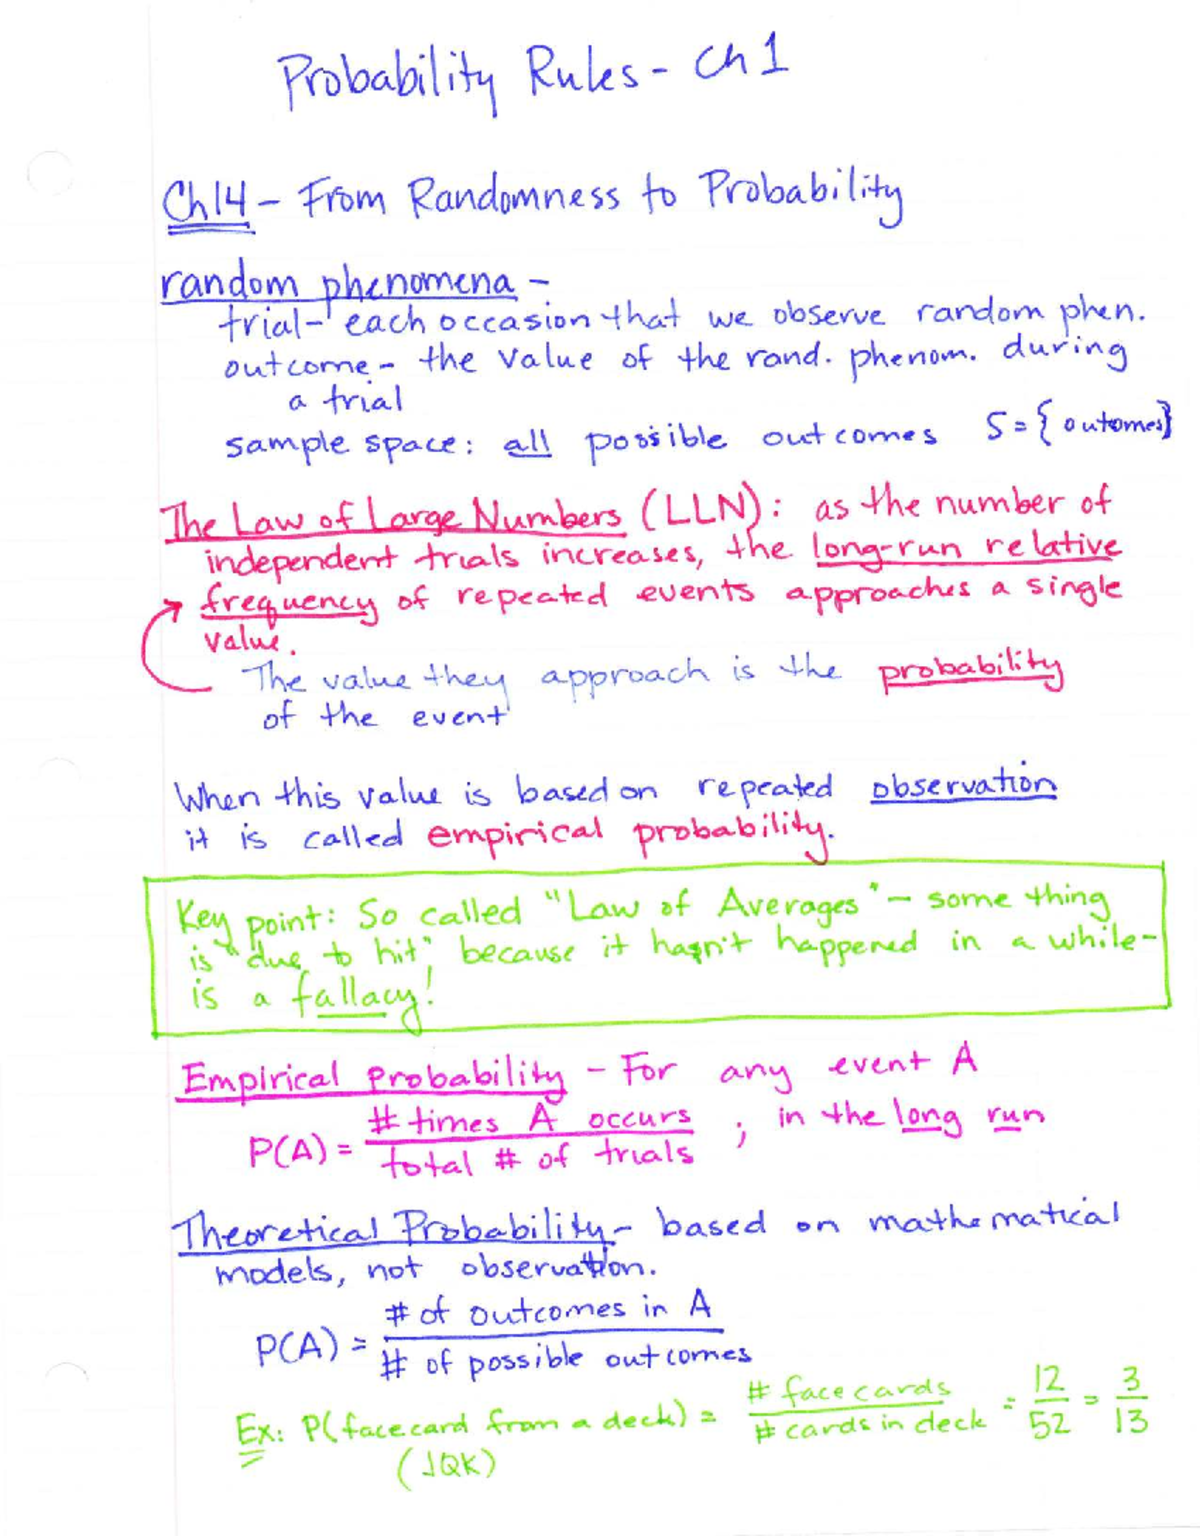 Probability Rules - Ch 1
Ch 14 - From Randomness to Probability
random phenomena -
trial - each occasion that we observe random phen.
outcome - the value of the rand. phenom. during
a trial
sample space: all possible outcomes S = { outomes}
The Law of Large Numbers (LLN): as the number of
independent trials increases, the long-run relative
frequency of repeated events approaches a single
value.
The value they approach is the probability
of the event
When this value is based on repeated observation
it is called empirical probability.
Key point: So called "Law of Averages" - some thing
is "due to hit" because it hasn't happened in a while -
is a fallacy!
Empirical Probability - For any event A
P(A) = # times A occurs / total # of trials ; in the long run
Theoretical Probability - based on mathematical
models, not observation.
P(A) = # of outcomes in A / # of possible outcomes
Ex: P(face card from a deck) = # face cards / # cards in deck = 12/52 = 3/13
(JQK)